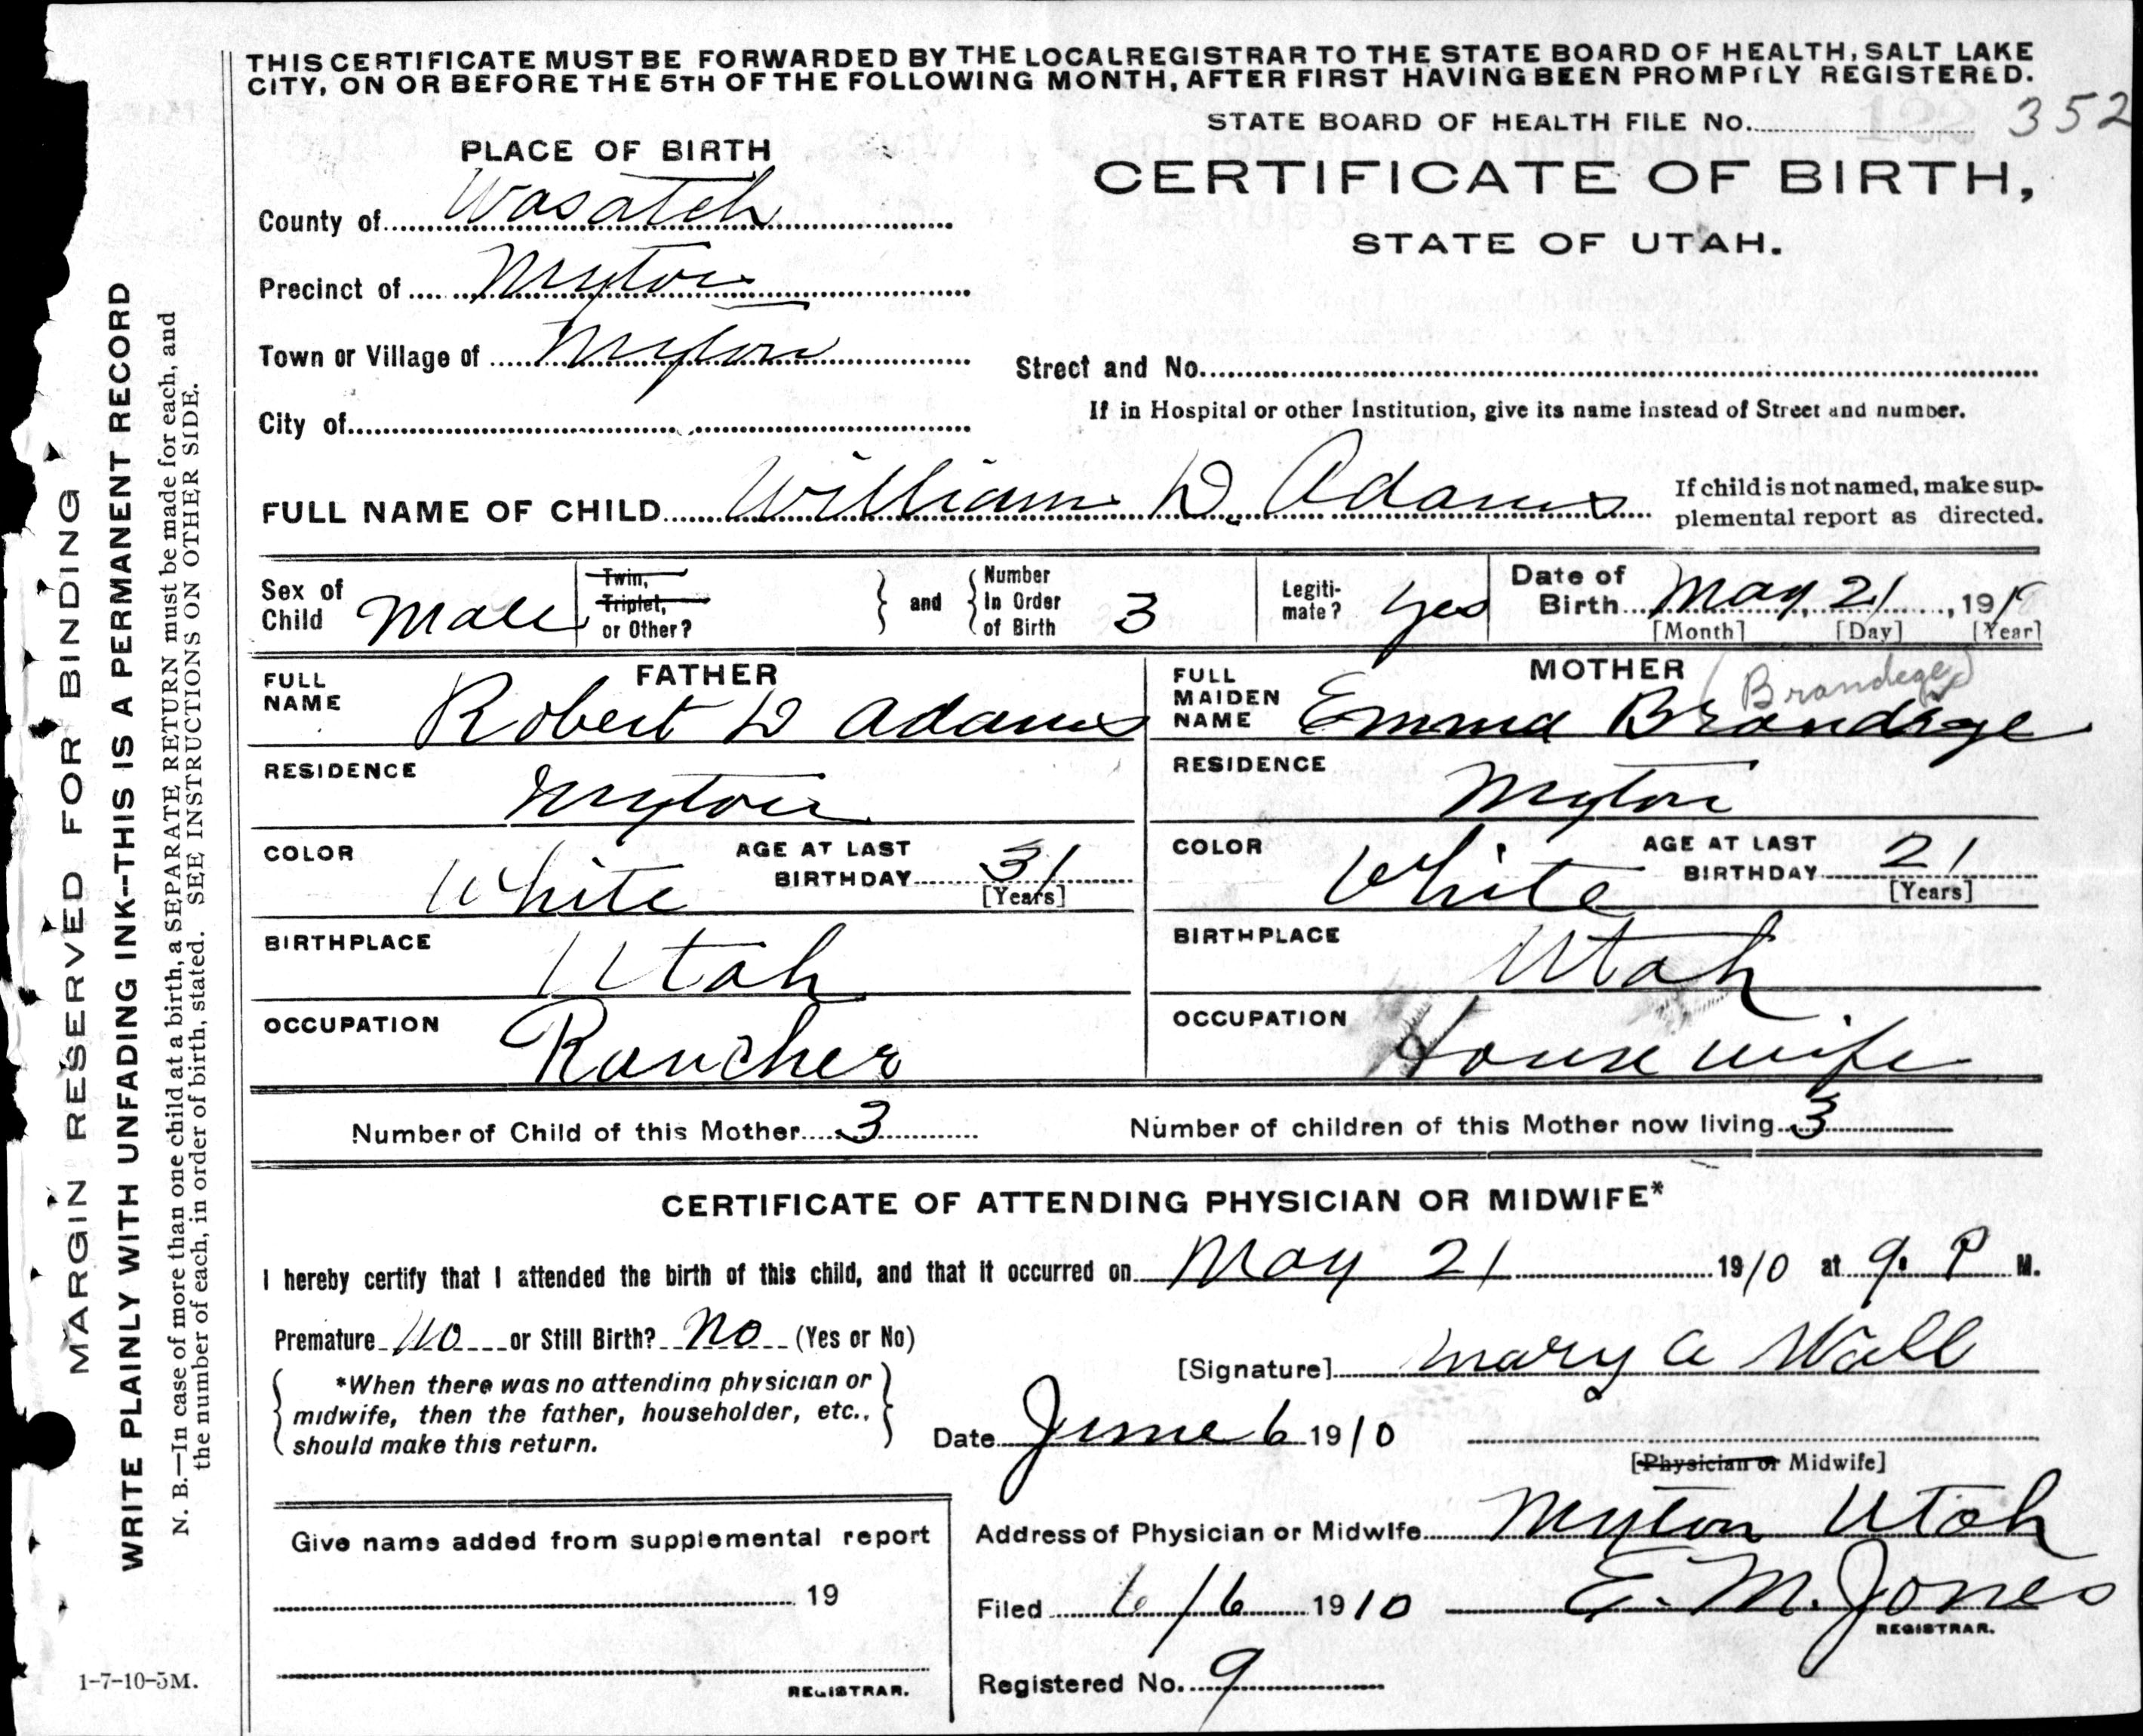 THIS CERTIFICATE MUST BE FORWARDED BY THE LOCAL REGISTRAR TO THE STATE BOARD OF HEALTH, SALT LAKE
CITY, ON OR BEFORE THE 5TH OF THE FOLLOWING MONTH, AFTER FIRST HAVING BEEN PROMPTLY REGISTERED.
STATE BOARD OF HEALTH FILE No. 122 352
PLACE OF BIRTH
CERTIFICATE OF BIRTH,
STATE OF UTAH.
County of Wasatch
Precinct of Myton
Town or Village of Myton
Street and No.
If in Hospital or other Institution, give its name instead of Street and number.
City of
FULL NAME OF CHILD William D. Adams
If child is not named, make sup-
plemental report as directed.
Sex of Child Male
Twin, Triplet, or Other?
and
Number In Order of Birth 3
Legiti-mate? Yes
Date of Birth May, 21, 1910
[Month] [Day] [Year]
FATHER
FULL NAME Robert D Adams
RESIDENCE Myton
COLOR White
AGE AT LAST BIRTHDAY 31 [Years]
BIRTHPLACE Utah
OCCUPATION Rancher
MOTHER
(Brandege)
FULL MAIDEN NAME Emma Brandege
RESIDENCE Myton
COLOR White
AGE AT LAST BIRTHDAY 21 [Years]
BIRTHPLACE Utah
OCCUPATION House wife
Number of Child of this Mother 3
Number of children of this Mother now living 3
CERTIFICATE OF ATTENDING PHYSICIAN OR MIDWIFE*
I hereby certify that I attended the birth of this child, and that it occurred on May 21 1910 at 9. P M.
Premature No or Still Birth? No (Yes or No)
[Signature] Mary A Wall
*When there was no attending physician or
midwife, then the father, householder, etc.,
should make this return.
Date June 6 1910
[Physician or Midwife]
Give name added from supplemental report
19
REGISTRAR.
Address of Physician or Midwife Myton Utah
Filed 6/6 1910 E. M. Jones
REGISTRAR.
Registered No. 9
MARGIN RESERVED FOR BINDING
WRITE PLAINLY WITH UNFADING INK--THIS IS A PERMANENT RECORD
N. B.—In case of more than one child at a birth, a SEPARATE RETURN must be made for each, and
the number of each, in order of birth, stated. SEE INSTRUCTIONS ON OTHER SIDE.
1-7-10-5M.